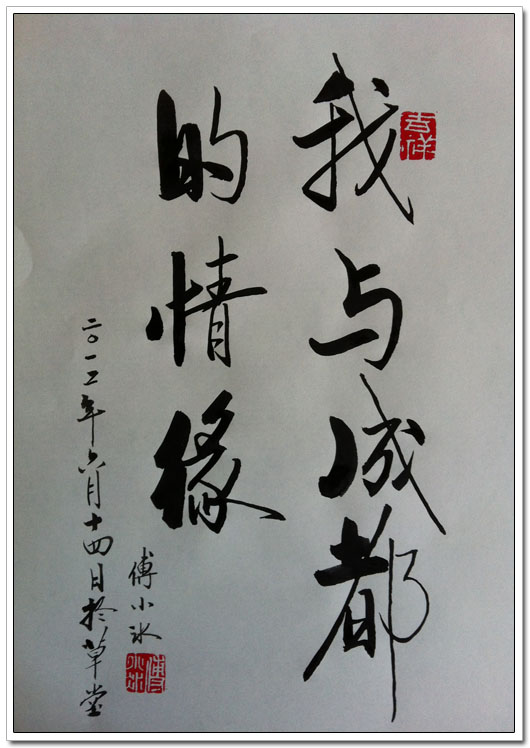 我与成都
的情缘
二〇一二年六月十四日於草堂
傅小冰
吉祥